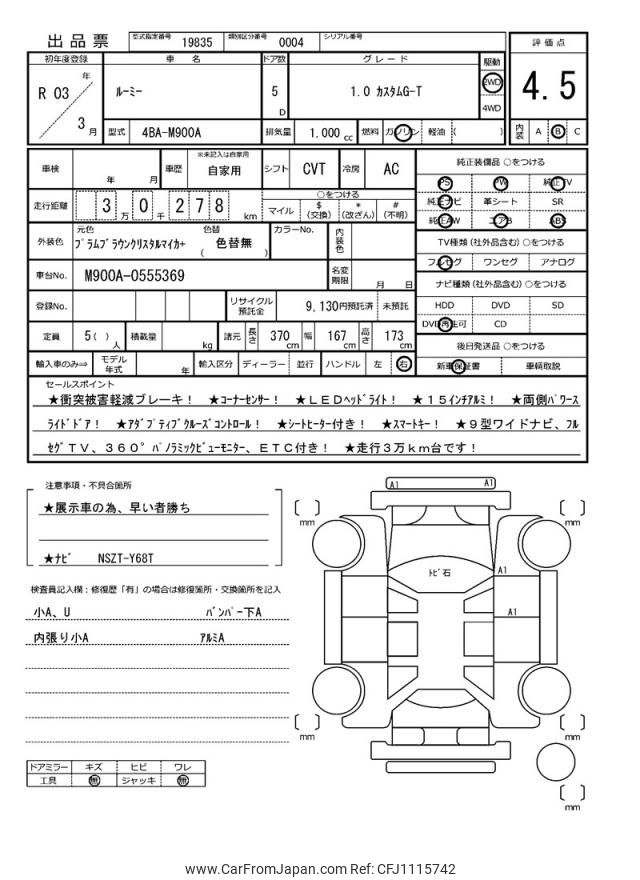 出品票 型式指定番号 19835 類別区分番号 0004 シリアル番号
評価点
4.5
内装 A B C
初年度登録 車名 ドア数 グレード 駆動
R 03 年 3 月 ルーミー 5 D 1.0 カスタムG-T 2WD 4WD
型式 4BA-M900A 排気量 1.000 cc 燃料 ガソリン 軽油 ( )
車検 年 月 車歴 ※未記入は自家用 自家用 シフト CVT 冷房 AC
走行距離 3 万 0 千 2 7 8 km ○をつける
マイル $ (交換) * (改ざん) # (不明)
外装色 元色 プラムブラウンクリスタルマイカ+ 色替 ( 色替無 ) カラーNo. 内装色
車台No. M900A-0555369 名変期限 月 日
登録No. リサイクル預託金 9,130円預託済 未預託
定員 5( ) 人 積載量 kg 諸元 長さ 370 cm 幅 167 cm 高さ 173 cm
輸入車のみ⇒ モデル年式 年 輸入区分 ディーラー 並行 ハンドル 左 右
純正装備品 ○をつける
PS PW 純正TV
純正ナビ 革シート SR
純正AW エアB ABS
TV種類 (社外品含む) ○をつける
フルセグ ワンセグ アナログ
ナビ種類 (社外品含む) ○をつける
HDD DVD SD
DVD再生可 CD
後日発送品 ○をつける
新車保証書 車輌取説
セールスポイント
★衝突被害軽減ブレーキ! ★コーナーセンサー! ★LEDヘッドライト! ★15インチアルミ! ★両側パワース
ライドドア! ★アダプティブクルーズコントロール! ★シートヒーター付き! ★スマートキー! ★9型ワイドナビ、フル
セグTV、360°パノラミックビューモニター、ETC付き! ★走行3万km台です!
注意事項・不具合箇所
★展示車の為、早い者勝ち
★ナビ NSZT-Y68T
検査員記入欄:修復歴「有」の場合は修復箇所・交換箇所を記入
小A、U バンパー下A
内張り小A アルミA
ドアミラー キズ ヒビ ワレ
工具 無 ジャッキ 無
A1 A1
mm mm
トビ石 A1
A1
mm mm
mm
www.CarFromJapan.com Ref: CFJ1115742